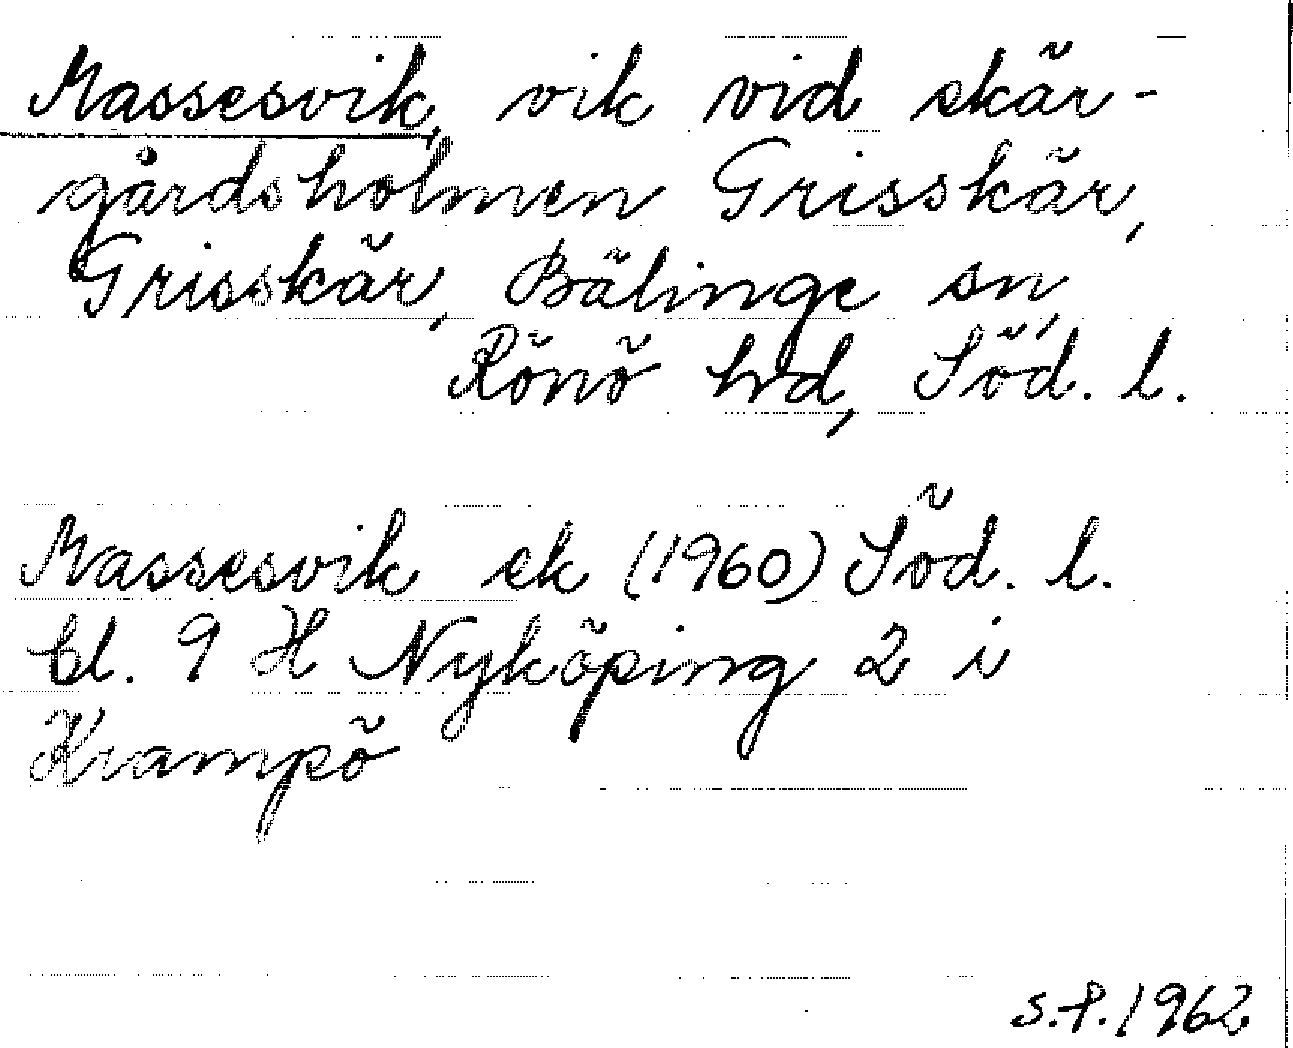 Massesvik, vik vid skär-
gårdsholmen Grisskär,
Grisskär, Bälinge sn,
Rönö hd, Söd. l.
Massesvik ek (1960) Söd. l.
bl. 9 H Nyköping 2 i
Krampö
S.P. 1962